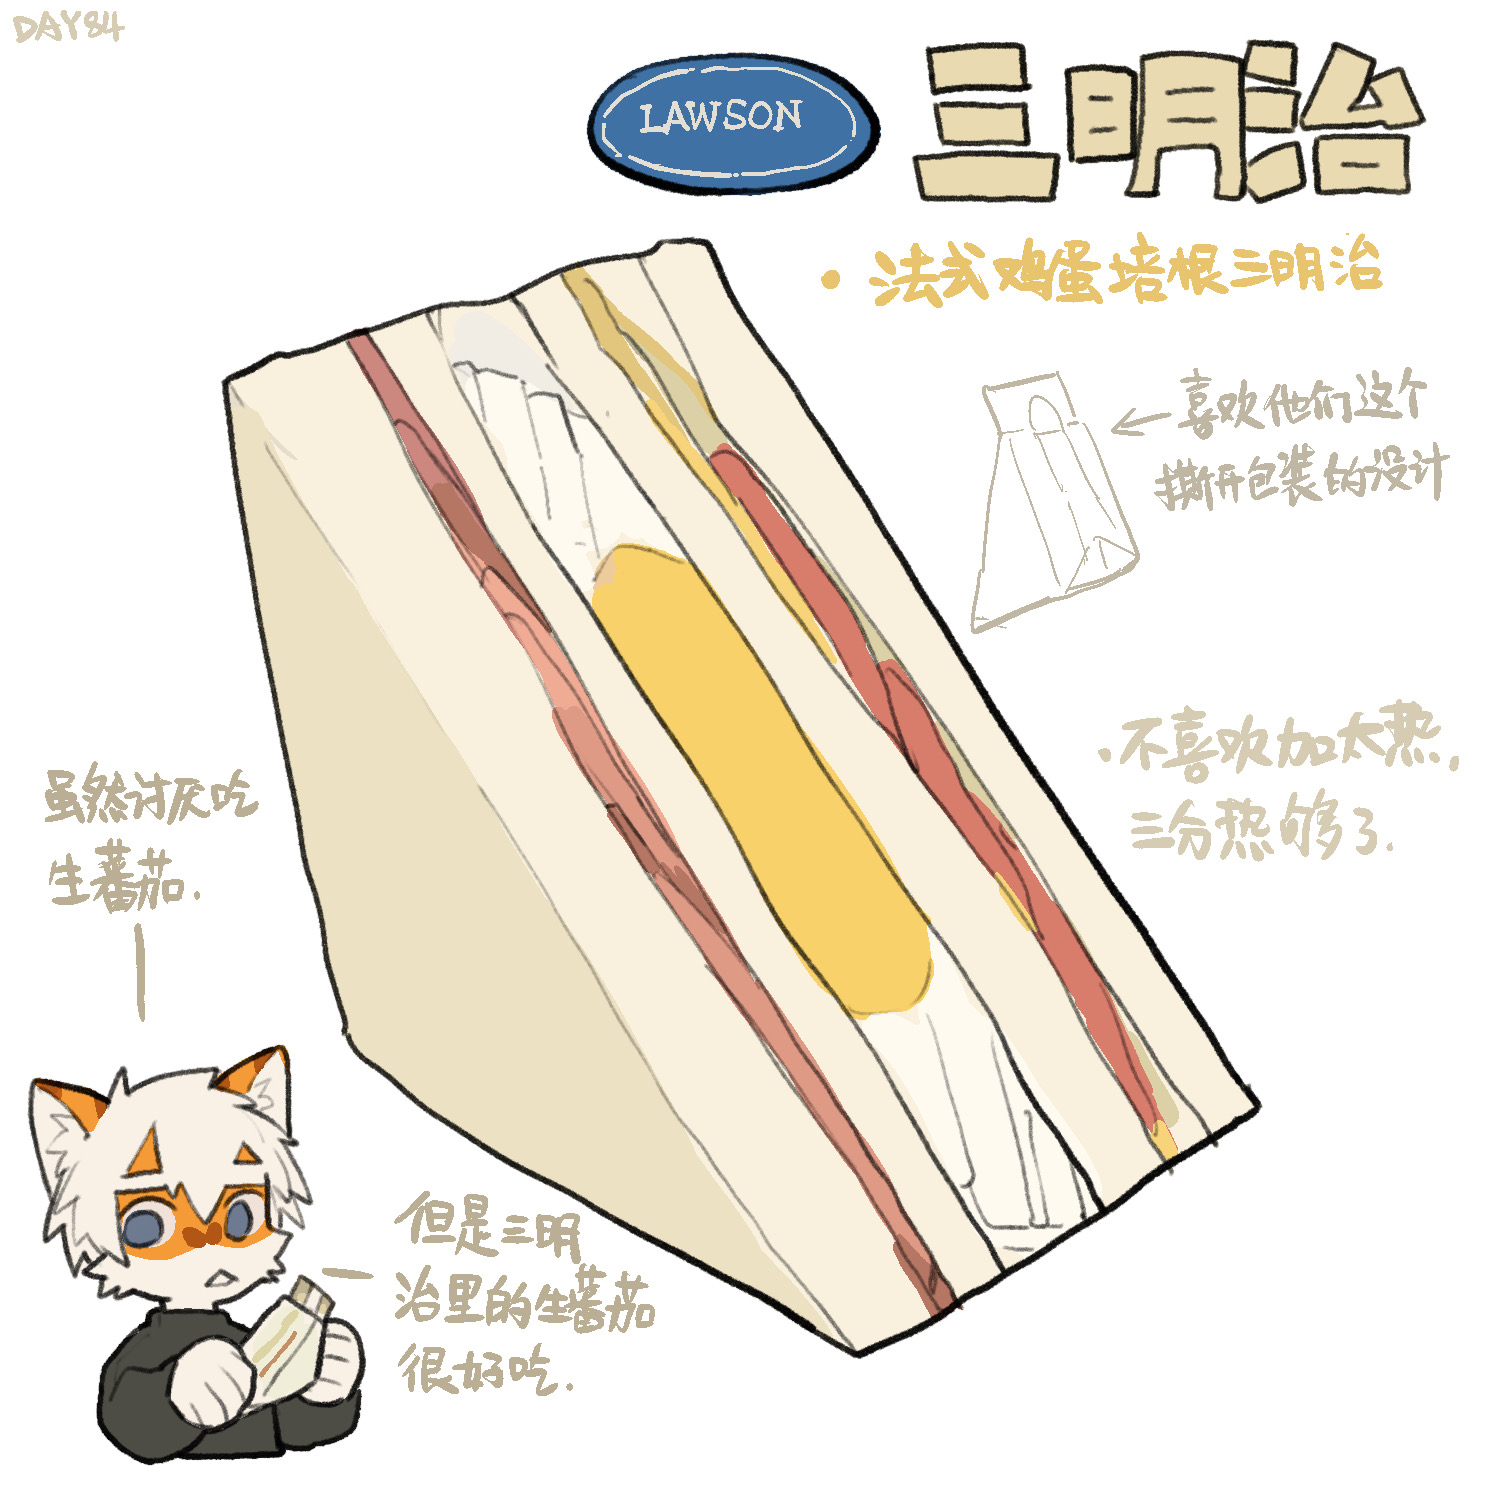 DAY84
LAWSON
三明治
·法式鸡蛋培根三明治
喜欢他们这个
撕开包装的设计
·不喜欢加太热,
三分热够了.
虽然讨厌吃
生蕃茄.
但是三明
治里的生蕃茄
很好吃.